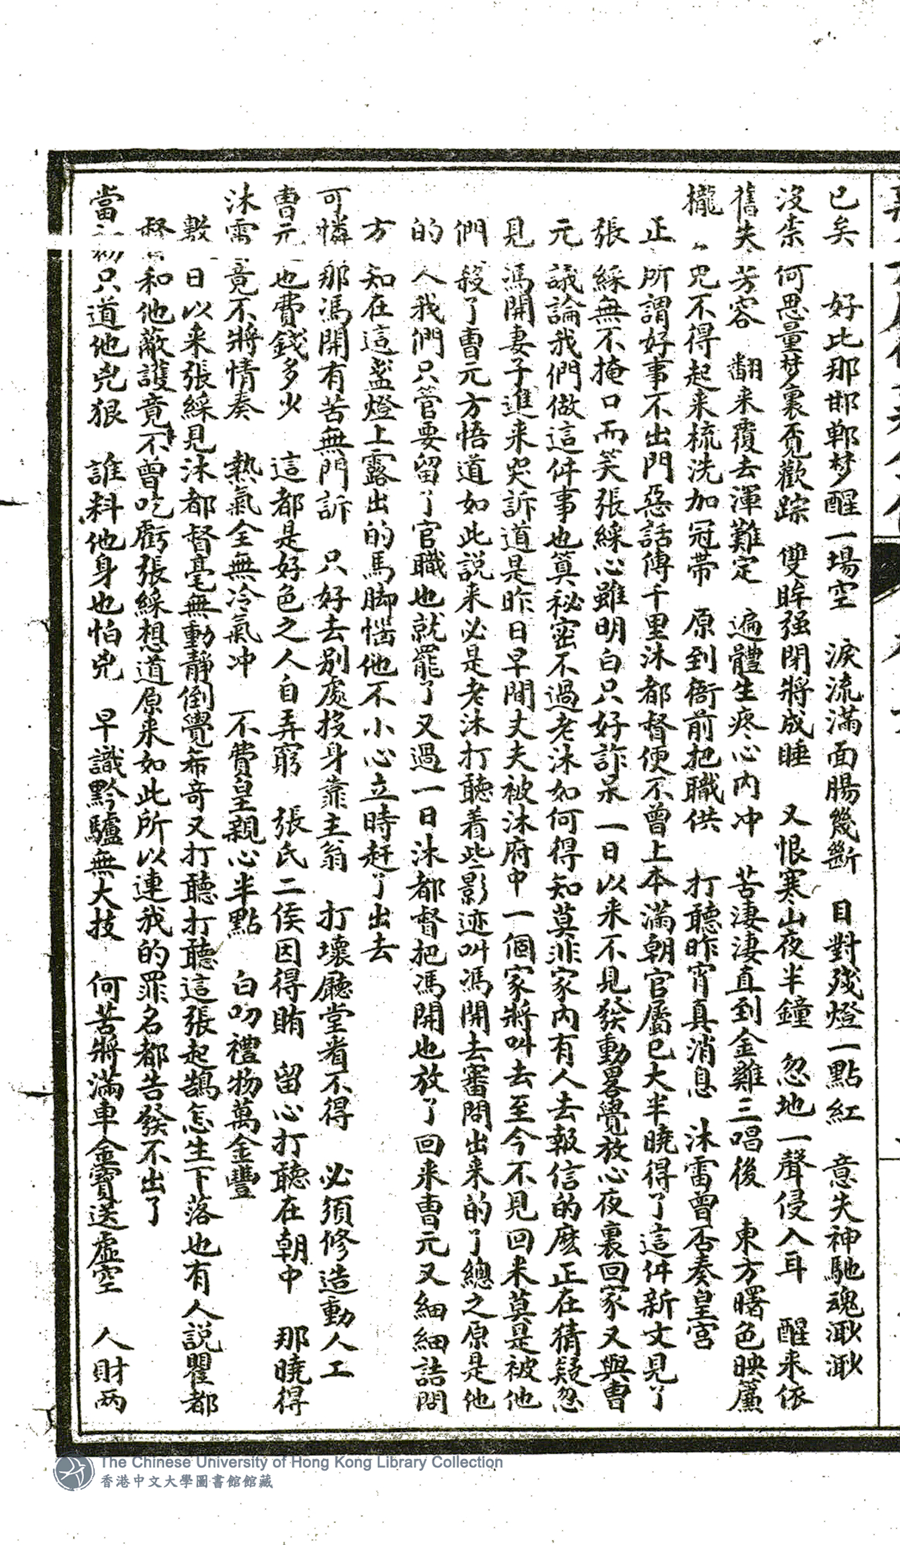 已矣 好比那邯鄲梦醒一場空 淚流滿面腸幾斷 目對殘燈一點紅 意失神馳魂渺渺
沒柰何思量梦裏覔歡踪 雙眸強閉將成睡 又恨寒山夜半鐘 忽地一聲侵入耳 醒来依
舊失芳容 翻来覆去渾難定 遍體生疼心內冲 苦淒淒直到金雞三唱後 東方曙色映簾
櫳 免不得起来梳洗加冠帯 原到衙前把職供 打聽昨宵真消息 沐雷曾否奏皇宮
正所謂好事不出門惡話傳千里沐都督便不曾上本滿朝官屬已大半曉得了這件新文見了
張綵無不掩口而笑張綵心雖明白只好詐呆一日以来不見發動畧覺放心夜裏回家又與曹
元議論我們做這件事也算秘密不過老沐如何得知莫非家內有人去報信的麽正在猜疑忽
見馮開妻子進来哭訴道是昨日早間丈夫被沐府中一個家將叫去至今不見回来莫是被他
們殺了曹元方悟道如此說来必是老沐打聽着些影迹叫馮開去審問出来的了總之原是他
的人我們只管要留了官職也就罷了又過一日沐都督把馮開也放了回来曹元又細細詰問
方知在這盞燈上露出的馬脚惱他不小心立時赶了出去
可憐那馮開有苦無門訴 只好去别處投身靠主翁 打壞廳堂者不得 必須修造動人工
曹元也費錢多少 這都是好色之人自弄窮 張氏二侯因得賄 留心打聽在朝中 那曉得
沐雷竟不將情奏 熱氣全無冷氣冲 不費皇親心半點 白叨禮物萬金豐
數日以来張綵見沐都督毫無動靜倒覺希奇又打聽打聽這張起鵠怎生下落也有人說瞿都
督和他敵護竟不曾吃虧張綵想道原来如此所以連我的罪名都告發不出了
當初只道他兇狠 誰料他身也怕兇 早識黔驢無大技 何苦將滿車金寶送虛空 人財兩
The Chinese University of Hong Kong Library Collection
香港中文大學圖書館館藏